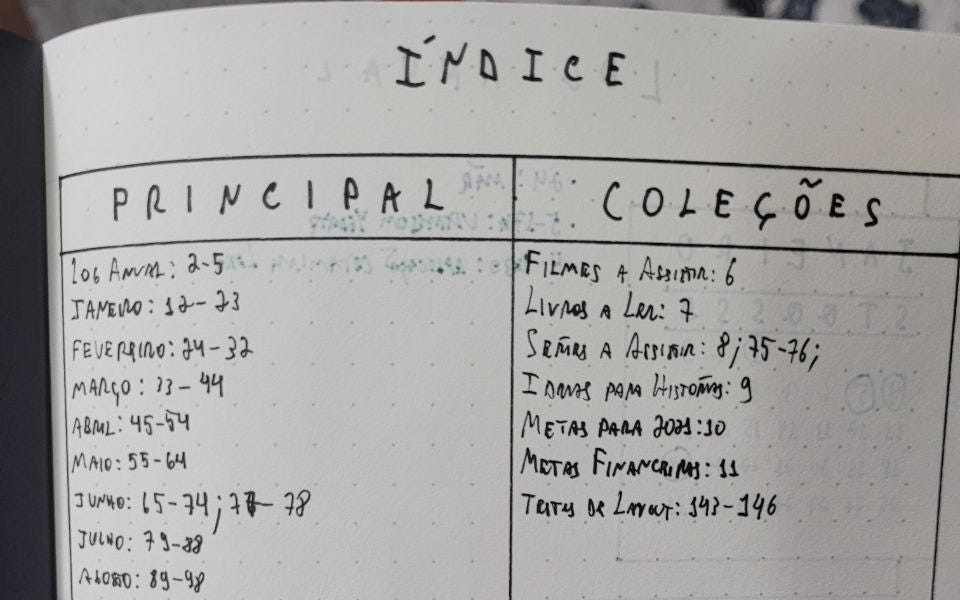 ÍNDICE
PRINCIPAL
LOG ANUAL: 2-5
JANEIRO: 12-23
FEVEREIRO: 24-32
MARÇO: 33-44
ABRIL: 45-54
MAIO: 55-64
JUNHO: 65-74; 77-78
JULHO: 79-88
AGOSTO: 89-98
COLEÇÕES
FILMES A ASSISTIR: 6
LIVROS A LER: 7
SÉRIES A ASSISTIR: 8; 75-76;
IDEIAS PARA HISTÓRIAS: 9
METAS PARA 2021: 10
METAS FINANCEIRAS: 11
TESTES DE LAYOUT: 143-146